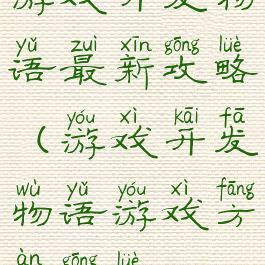 游戏开发物
yǔ zuì xīn gōng lüè
语最新攻略
yóu xì kāi fā
（游戏开发
wù yǔ yóu xì fāng
物语游戏方
àn gōng lüè